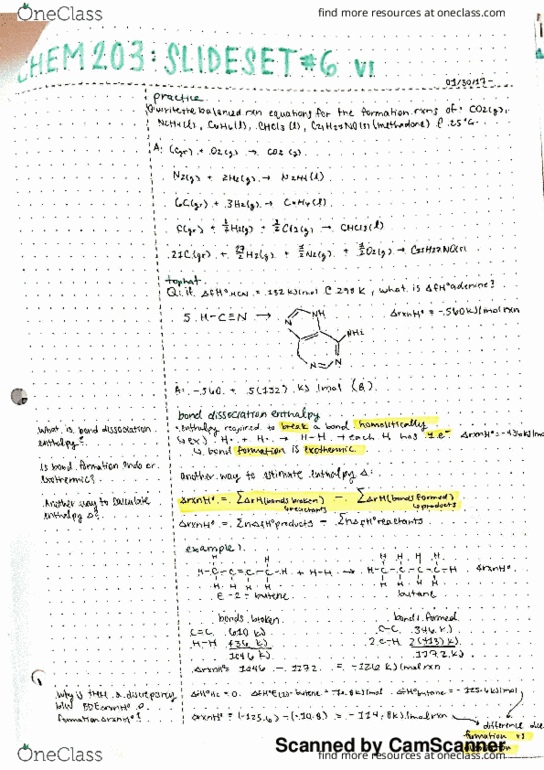 OneClass
find more resources at oneclass.com
CHEM 203: SLIDESET #6 V1
01/30/17
practice
Q: write the balanced rxn equations for the formation rxns of: CO2(g),
N2H4(l), C6H6(l), CHCl3(l), C21H27NO(s) (methadone) @ 25°C.
A: C(gr) + O2(g) → CO2(g)
N2(g) + 2H2(g) → N2H4(l)
6C(gr) + 3H2(g) →
C(gr) + ½H2(g) + 3/2Cl2(g) → CHCl3(l)
21C(gr) + 27/2H2(g) + ½N2(g) + ½O2(g) → C21H27NO(s)
tophat
Q: if ΔfH°HCN = 132 kJ/mol @ 298 K, what is ΔfH° adenine?
5 H-C≡N →
N
NH
NH2
N
N
ΔrxnH° = -560 kJ/mol rxn
A: -560 + 5(132) kJ/mol (B)
bond dissociation enthalpy
What is bond dissociation
enthalpy?
enthalpy required to break a bond homolitically
ex) H· + H· → H-H → each H has 1 e⁻ ΔrxnH° = -436 kJ/mo
bond formation is exothermic
Is bond formation endo or
exothermic?
another way to estimate enthalpy Δ:
Another way to calculate
enthalpy Δ?
ΔrxnH° = ΣΔrH(bonds broken) - ΣΔrH(bonds formed)
reactants
products
ΔrxnH° = ΣnΔfH° products - ΣnΔfH° reactants
example 1
H H
H-C-C=C-C-H + H-H → H-C-C-C-C-H ΔrxnH°
H H H H
e-2-butene
butane
bonds broken
bonds formed
C=C 610 kJ
C-C 346 kJ
H-H 436 kJ
2 C-H 2(413) kJ
1046 kJ
1172 kJ
ΔrxnH° = 1046 - 1172 = -126 kJ/mol rxn
Why is there a discrepancy
b/w BDE rxnH° &
formation ΔrxnH°?
ΔfH°H2 = 0 ΔfH°E(2)-butene = -10.8 kJ/mol ΔfH°butane = -125.6 kJ/mol
ΔrxnH° = (-125.6) - (-10.8) = -114.8 kJ/mol rxn
difference
formation vs
Scanned by CamScanner
OneClass
find more resources at oneclass.com